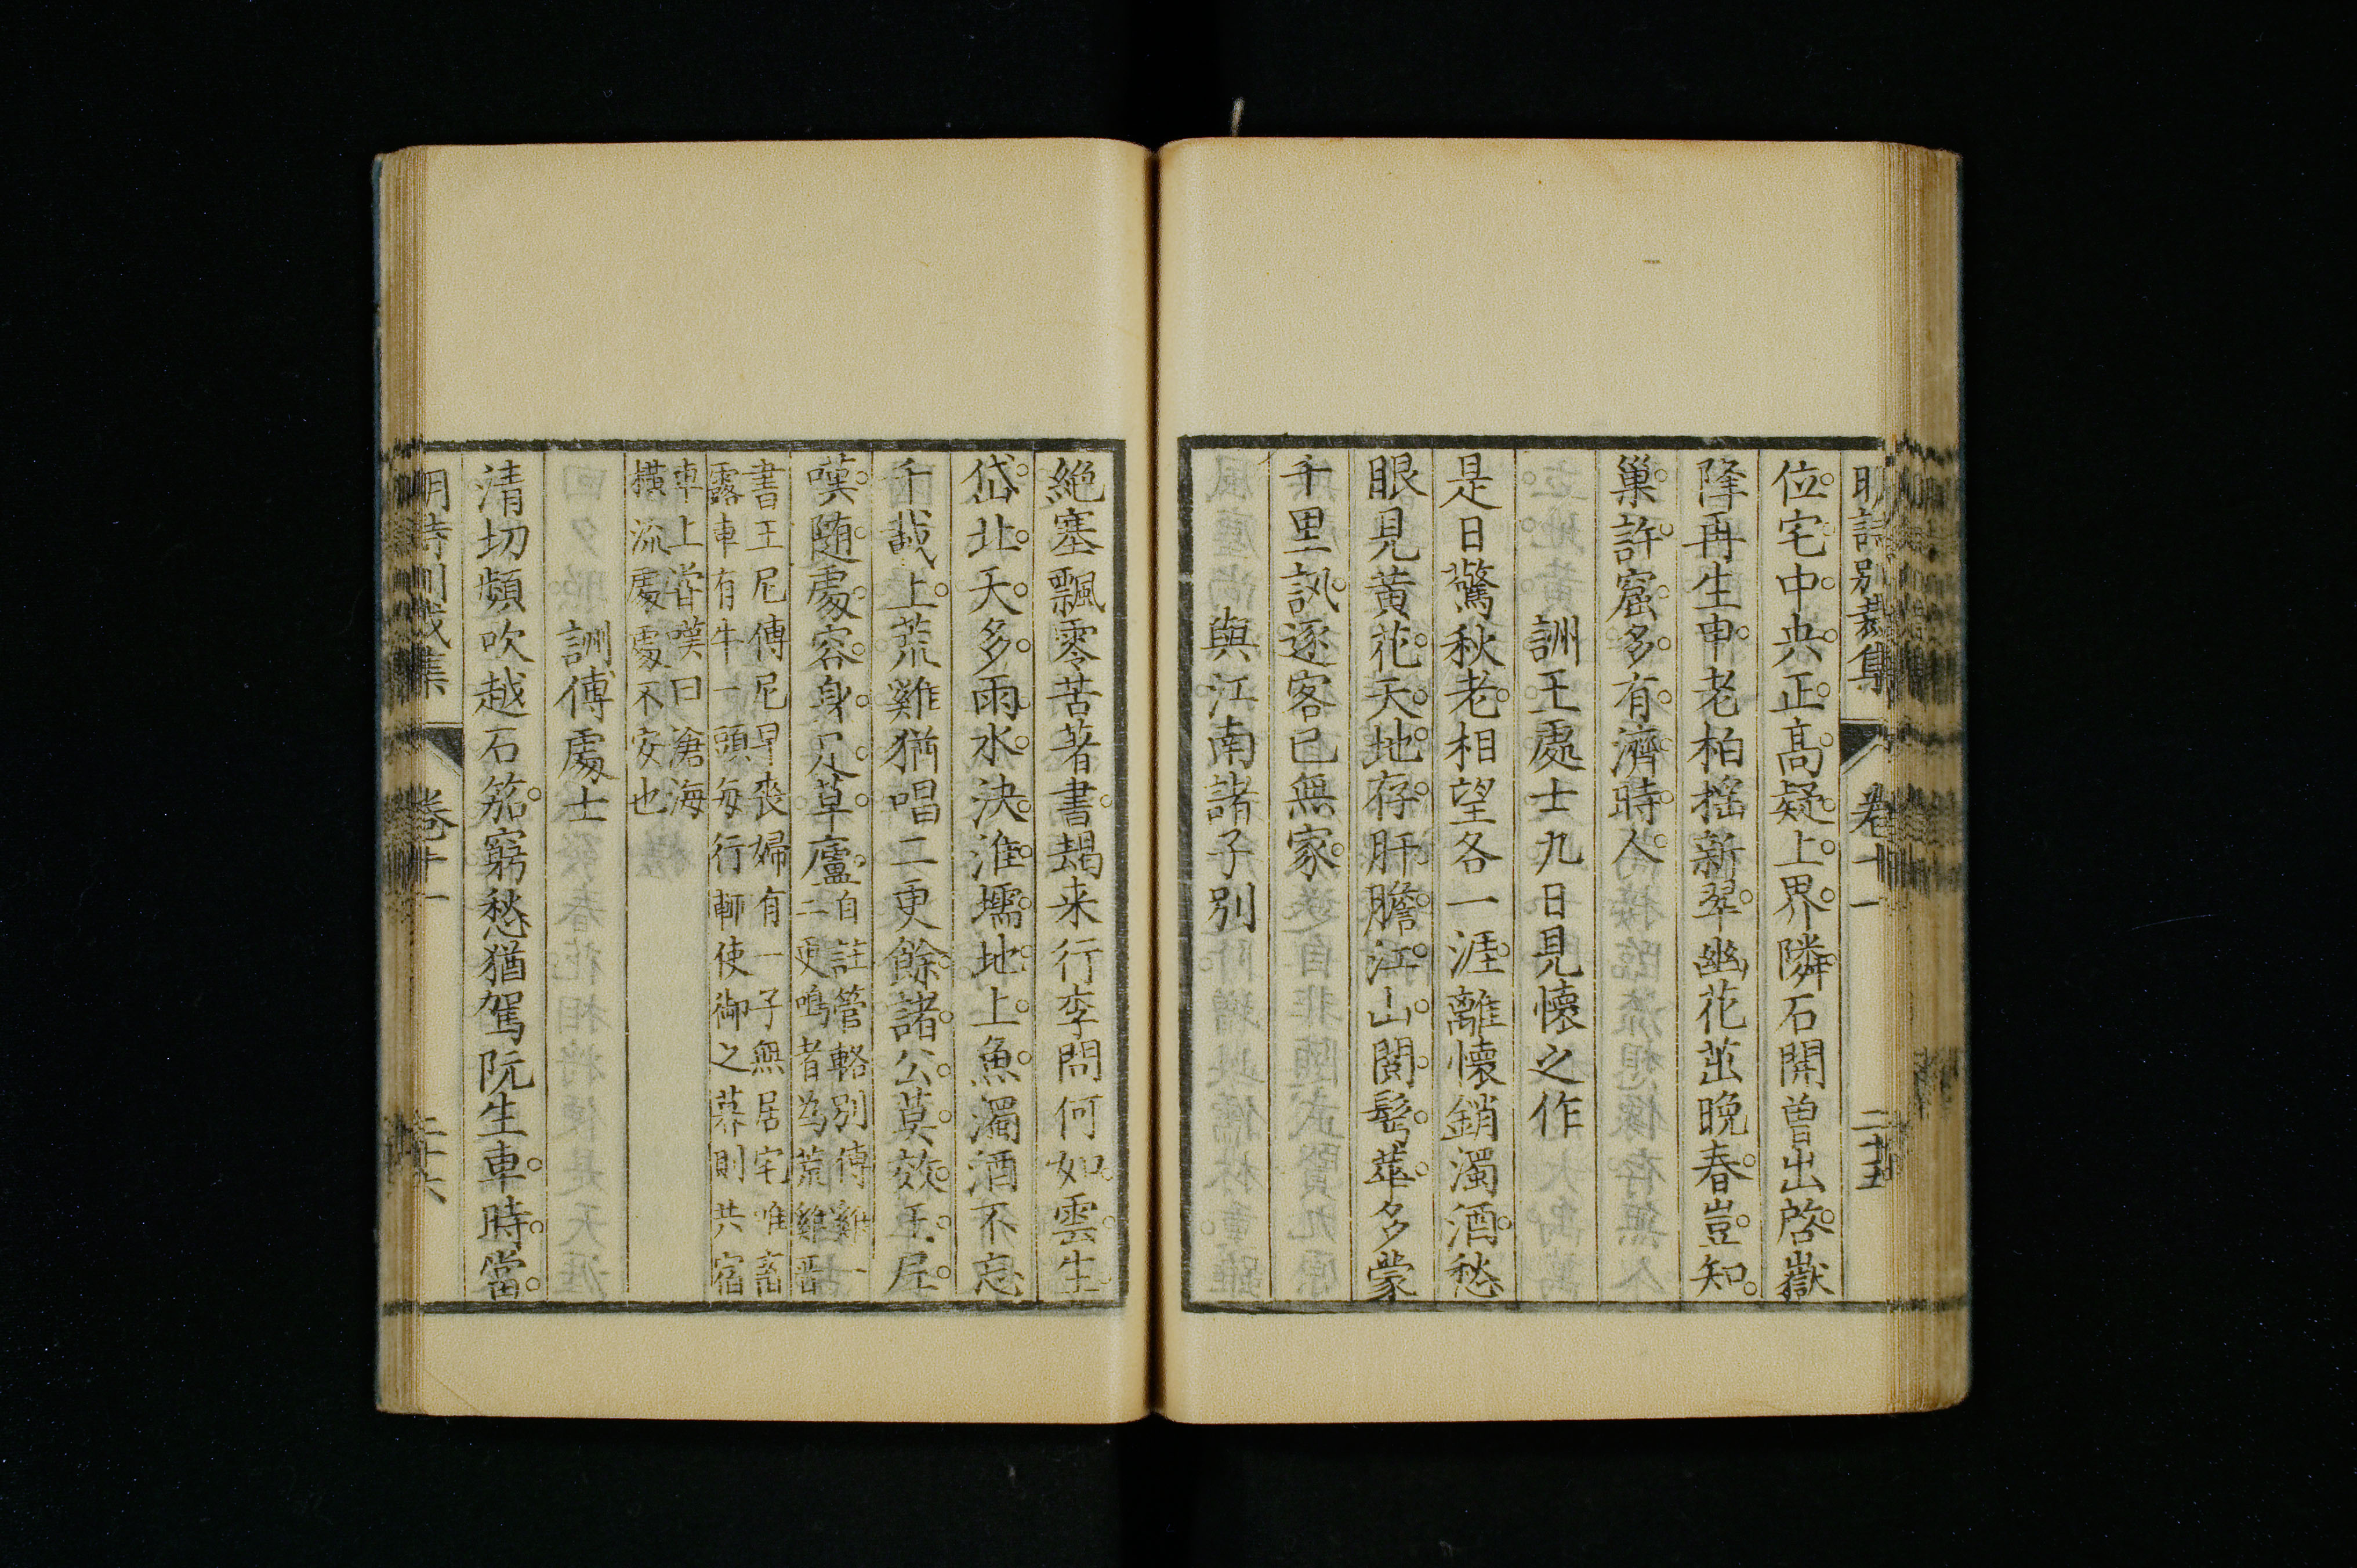 明詩別裁集 卷十一 二十五
位宅中央正高疑上界隣石開曾出啓嶽
降再生申老柏搖新翠幽花茁晚春豈知
巢許窟多有濟時人
詶王處士九日見懷之作
是日驚秋老相望各一涯離懷銷濁酒愁
眼見黃花天地存肝膽江山閱鬂華多蒙
千里訊逐客已無家
與江南諸子別
絕塞飄零苦著書朅来行李問何如雲生
岱北天多雨水決淮壖地上魚濁酒不忘
千載上荒雞猶唱二更餘諸公莫效王尼
嘆随處容身足草廬自註管輅别傳雞一
二更鳴者为荒雞晋
書王尼傳尼早丧婦有一子無居宅唯畜
露車有牛一頭每行輒使御之暮則共宿
車上嘗嘆曰滄海
橫流處處不安也
詶傅處士
清切頻吹越石笳窮愁猶駕阮生車時當
明詩別裁集 卷十一 二十六